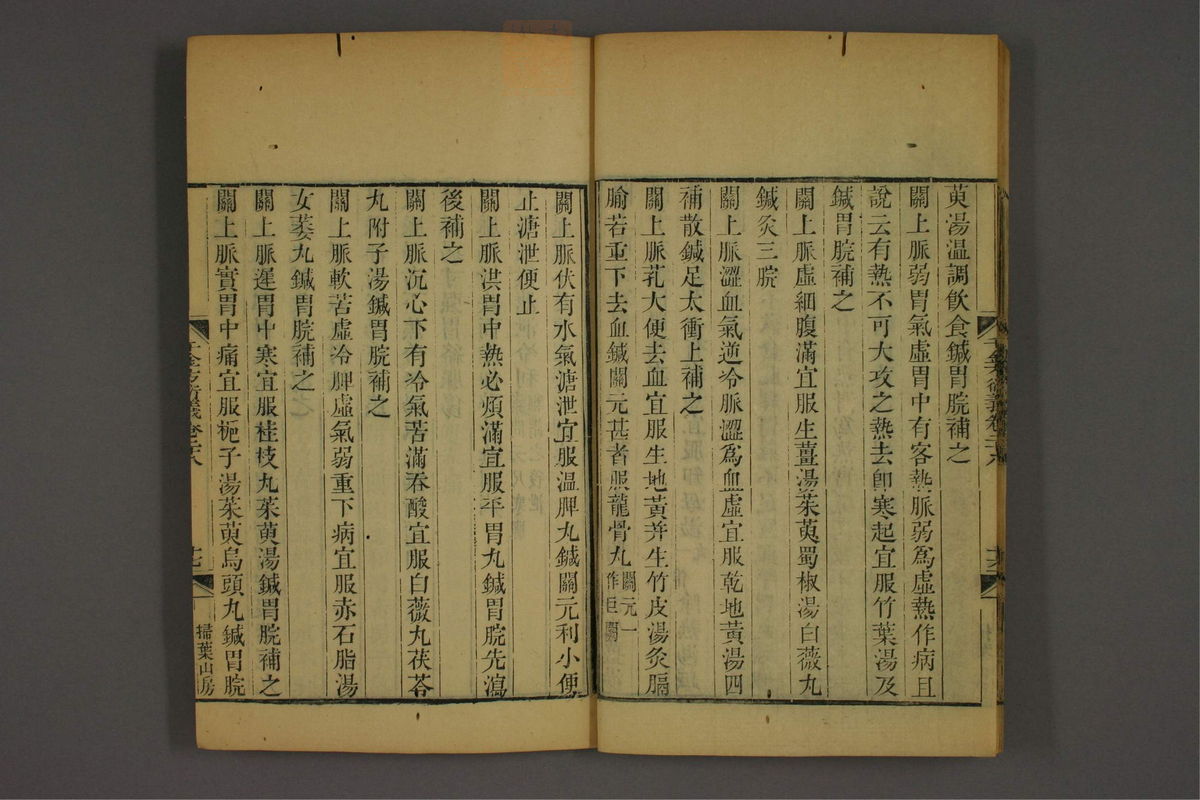 萸湯温調飲食鍼胃脘補之
關上脈弱胃氣虛胃中有客熱脈弱爲虛熱作病且
說云有熱不可大攻之熱去卽寒起宜服竹葉湯及
鍼胃脘補之
關上脈虛細腹滿宜服生薑湯茱萸蜀椒湯白薇丸
鍼灸三脘
關上脈澀血氣逆冷脈澀爲血虛宜服乾地黃湯四
補散鍼足太衝上補之
關上脈芤大便去血宜服生地黃幷生竹皮湯灸膈
腧若重下去血鍼關元甚者服龍骨丸關元一作巨闕
關上脈伏有水氣溏泄宜服温脾丸鍼關元利小便
止溏泄便止
關上脈洪胃中熱必煩滿宜服平胃丸鍼胃脘先瀉
後補之
關上脈沉心下有冷氣苦滿吞酸宜服白薇丸茯苓
丸附子湯鍼胃脘補之
關上脈軟苦虛冷脾虛氣弱重下病宜服赤石脂湯
女萎丸鍼胃脘補之
關上脈遲胃中寒宜服桂枝丸茱萸湯鍼胃脘補之
關上脈實胃中痛宜服梔子湯茱萸烏頭丸鍼胃脘
千金方衍義卷二十八
十七
掃葉山房